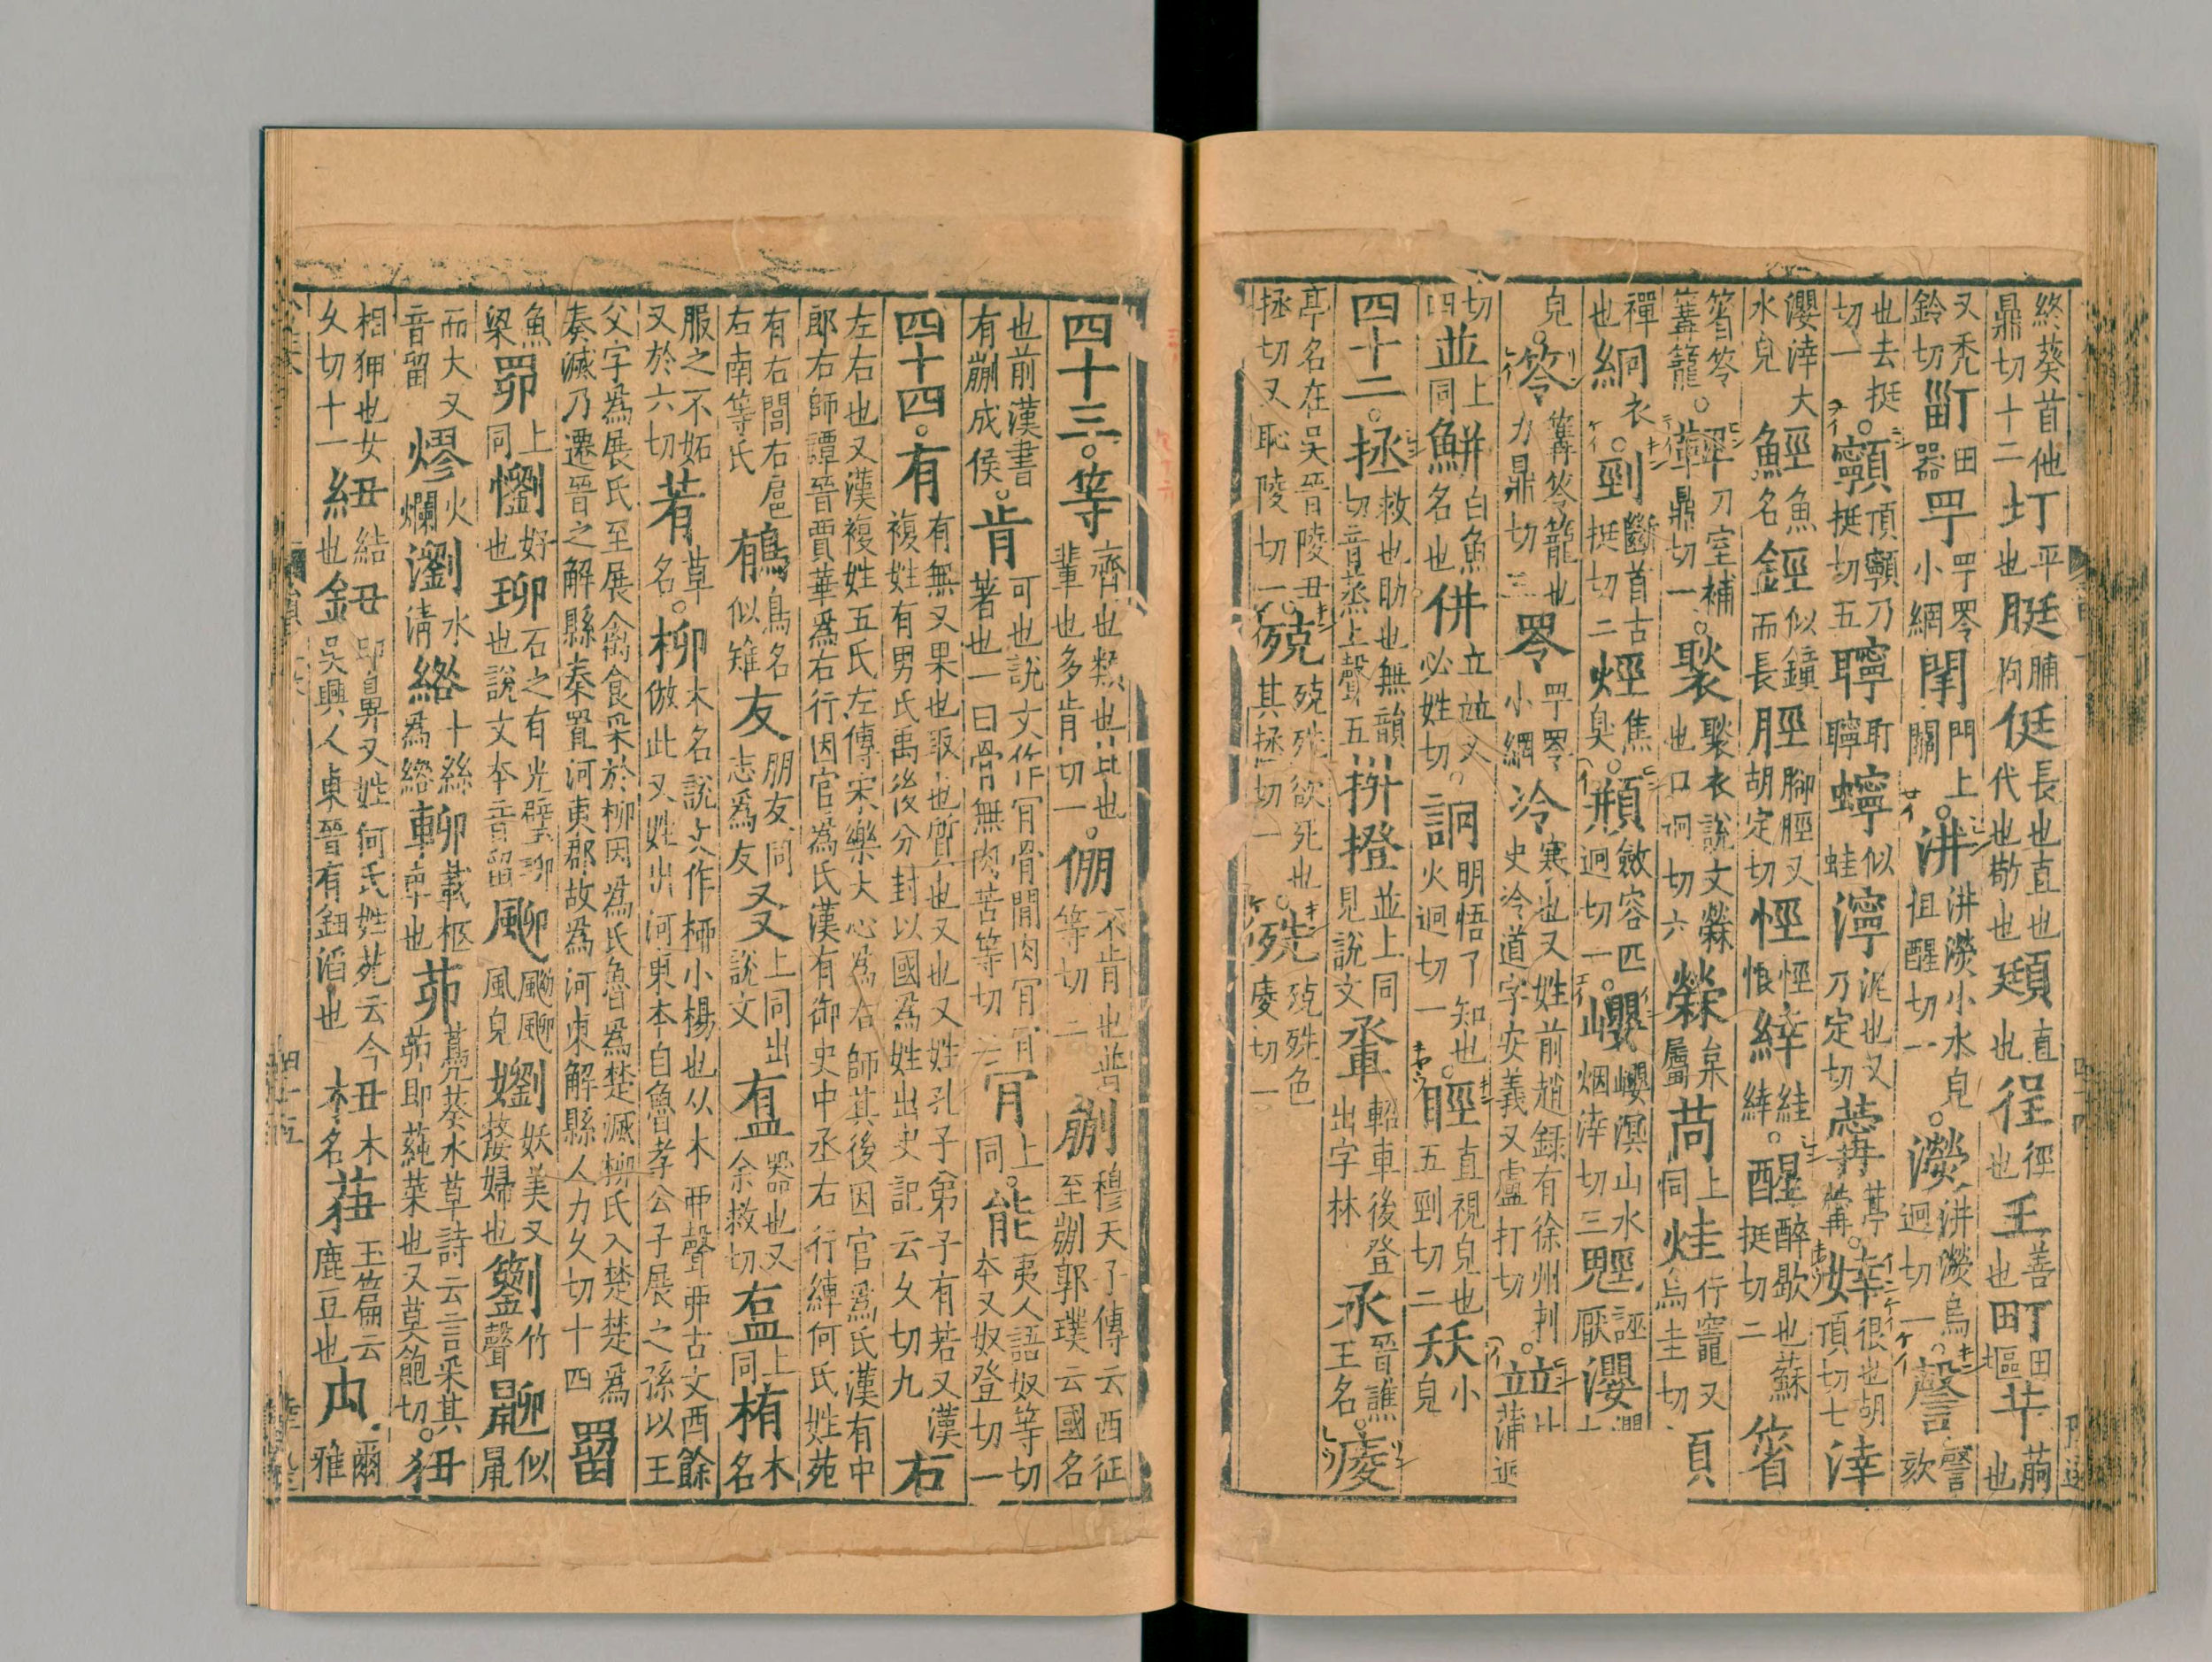 終葵首他鼎切十二圢平也脡脯朐侹長也直也代也敬也頲直也侱徑也壬善也町田區艼葋也
又禿鈴切甼田器䍈䍈零小網閮門上關。洴洴濙小水皃徂醒切一。濙洴濙烏迥切一。謦謦欬
也去挺切一。顊頂顊乃挺切五聹耵聹蠳似蛙濘泥也又乃定切薴葶薴。婞很也胡頂切七涬
瀴涬大水皃䱓魚名鋞似鐘而長脛腳脛又胡定切悻悻恨緈絓緈。醒醉歇也蘇挺切二箵
箵笭篝籠。鞞刀室補鼎切一。褧褧衣說文檾也口迥切六檾枲屬苘上同烓行竈又烏圭切頃
襌衣也絅衣。剄斷首古挺切二烴焦臭。頩斂容匹迥切一。巊巊溟山水烟涬切三誣厭瀴
皃。笭篝笭籠也力鼎切三零䍈零小網冷寒也又姓前趙錄有徐州刺史冷道字安義又盧打切。竝比也蒲迥
切四並上同鮩白魚名也併立竝又必姓切。詗明悟了知也火迥切一。脛直視皃也五剄切二奀小皃
四十二。拯救也助也無韻切音蒸上聲五抍撜並上同見說文𨋬軺車後登出字林氶晉譙王名。庱
亭名在吳晉陵丑拯切又恥陵切一。殑殑殊欲死也其拯切一。殊殑殊色庱切一
四十三。等齊也類也比也輩也多肯切一。倗不肯也普等切二𠟬穆天子傳云西征至𠟬郭璞云國名
也前漢書有𠟬成侯。肯可也說文作肎骨閒肉肎肎著也一曰骨無肉苦等切二肎上同。能夷人語奴等切本又奴登切一
四十四。有有無又果也取也質也又也又姓孔子弟子有有若又漢複姓有男氏禹後分封以國為姓出史記云久切九右
左右也又漢複姓五氏左傳宋樂大心為右師其後因官為氏漢有中郎右師譚晉賈華為右行因官為氏漢有御史中丞右行綽何氏姓苑
有右閭右扈右南等氏䳑鳥名似雉友朋友同志為友㕛上同出說文𥁓器也又余救切㿽上同栯木名
服之不妬又於六切䒴草名。柳木名說文作桺小楊也从木丣聲丣古文酉餘倣此又姓出河東本自魯孝公子展之孫以王
父字為展氏至展禽食采於柳因為氏魯為楚滅柳氏入楚楚為秦滅乃遷晉之解縣秦置河東郡故為河東解縣人力久切十四罶
魚梁䍌上同懰好也珋石之有光璧珋也說文本音留飀飀飀風皃嬼妖美又婹婦也䉧竹聲𪕋似鼠
而大又音留熮火爛瀏水清綹十絲為綹䡎載柩車也茆鳧葵水草詩云言采其茆即蓴菜也又莫飽切。狃
相狎也女久切十一紐結也鈕印鼻又姓何氏姓苑云今吳興人東晉有鈕滔也杻木名莥玉篇云鹿豆也禸爾雅